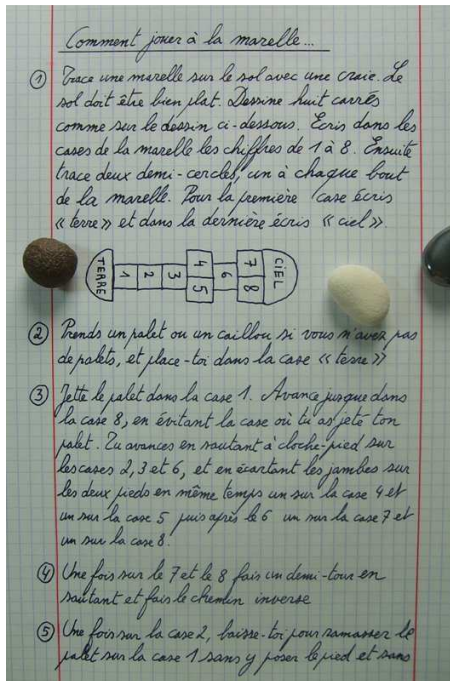 Comment jouer à la marelle...
① Trace une marelle sur le sol avec une craie. Le
sol doit être bien plat. Dessine huit carrés
comme sur le dessin ci-dessous. Ecris dans les
cases de la marelle les chiffres de 1 à 8. Ensuite
trace deux demi-cercles, un à chaque bout
de la marelle. Pour la première case écris
« terre » et dans la dernière écris « ciel ».
TERRE 1 2 3 4 5 6 7 8 CIEL
② Prends un palet ou un caillou si vous n'avez pas
de palets, et place-toi dans la case « terre »
③ Jette le palet dans la case 1. Avance jusque dans
la case 8, en évitant la case où tu as jeté ton
palet. Tu avances en sautant à cloche-pied sur
les cases 2, 3 et 6, et en écartant les jambes sur
les deux pieds en même temps un sur la case 4 et
un sur la case 5 puis après le 6 un sur la case 7 et
un sur la case 8.
④ Une fois sur le 7 et le 8 fais un demi-tour en
sautant et fais le chemin inverse
⑤ Une fois sur la case 2, baisse-toi pour ramasser le
palet sur la case 1 sans y poser le pied et sans